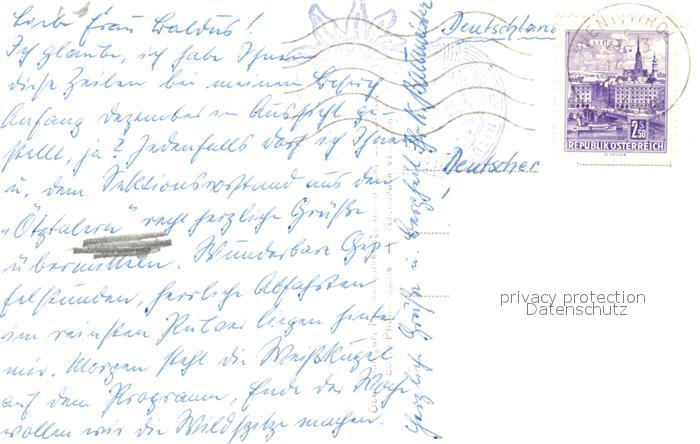 Liebe Frau Waldus!
Ich glaube, ich habe Ihnen
diese Zeilen bei meinem Besuch
Anfang Dezember in Aussicht ge-
stellt, ja? Jedenfalls darf ich Ihnen
u. dem Sektionsvorstand aus den
"Ötztalern" recht herzliche Grüße
übermitteln. Wunderbare Gip-
felstunden, herrliche Abfahrten
im reinsten Pulver liegen hinter
mir. Morgen steht die Weißkugel
auf dem Programm, Ende der Woche
wollen wir die Wildspitze machen.
Herzliche Grüße u. Bergheil Ihr
Deutschland
Deutscher
LINZ
2.50 S
REPUBLIK ÖSTERREICH
privacy protection
Datenschutz